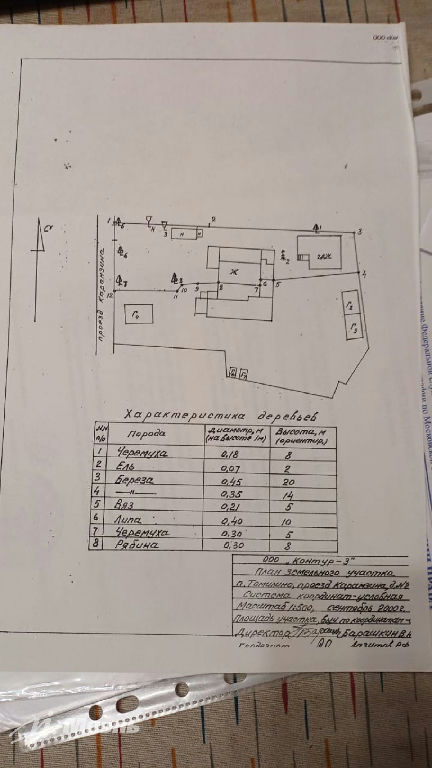 ООО
проезд Карамзина
Су
1
2
3
4
5
7
8
9
10
11
12
Ж
гар
Н
Г4
Г2
Г3
Характеристика деревьев
NN п/п Порода Диаметр, м (на высоте 1м) Высота, м (ориентир.)
1 Черемуха 0,18 8
2 Ель 0,07 2
3 Береза 0,45 20
4 —"— 0,35 14
5 Вяз 0,21 5
6 Липа 0,40 10
7 Черемуха 0,30 5
8 Рябина 0,30 8
ООО „Контур-3"
План земельного участка
п. Томилино, проезд Карамзина, д.№
Система координат-условная
Масштаб 1:500, сентябрь 2000г.
Площадь участка, выч по координатам
Директор Барашкин В.Н